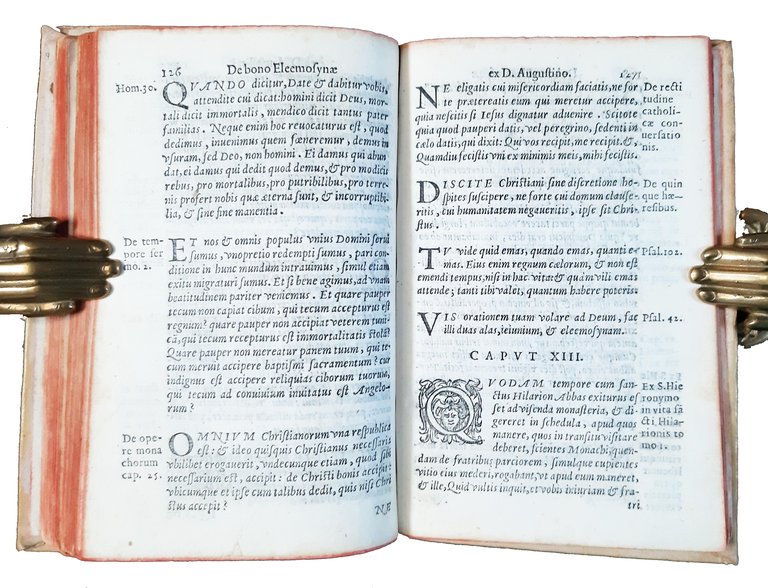 126 De bono Eleemosynæ
Hom. 30.
QVANDO dicitur, Date & dabitur vobis,
attendite cui dicat: homini dicit Deus, mor-
tali dicit immortalis, mendico dicit tantus pater
familias. Neque enim hoc reuocaturus est, quod
dedimus, inuenimus quem fœneremur, demus in
vsuram, sed Deo, non homini. Ei damus qui abun
dat, ei damus qui dedit quod demus, & pro modicis
rebus, pro mortalibus, pro putribilibus, pro terre-
nis profert nobis quæ æterna sunt, & incorruptibi-
lia, & sine fine manentia.
De tem-
pore ser
mo. 2.
ET nos & omnis populus vnius Domini serui
sumus, vno pretio redempti sumus, pari con-
ditione in hunc mundum intrauimus, simul etiam
exitu migraturi sumus. Et si bene agimus, ad vnam
beatitudinem pariter veniemus. Et quare pauper
tecum non capiat cibum, qui tecum accepturus est
regnum? quare pauper non accipiat veterem tuni-
cã, qui tecum recepturus est immortalitatis stolã?
Quare pauper non mereatur panem tuum, qui te-
cum meruit accipere baptismi sacramentum? cur
indignus est accipere reliquias ciborum tuorum,
qui tecum ad conuiuium inuitatus est Angelo-
rum?
De ope-
re mona
chorum
cap. 25.
OMNIVM Christianorum vna respublica
est: & ideo quisquis Christianus necessaria
vbilibet erogauerit, vndecunque etiam, quod sibi
necessarium est, accipit: de Christi bonis accipit:
vbicumque et ipse cum talibus dedit, quis nisi Chri
stus accepit?
NE
ex D. Augustino. 127
NE eligatis cui misericordiam faciatis, ne for
te prætereatis eum qui meretur accipere,
quia nescitis si Iesus dignatur aduenire. Scitote
quia quod pauperi datis, vel peregrino, sedenti in
cælo datis, qui dixit: Qui vos recipit, me recipit. &,
Quamdiu fecistis vni ex minimis meis, mihi fecistis.
De recti
tudine
catholi-
cæ con-
uersatio
nis.
DISCITE Christiani sine discretione ho-
spites suscipere, ne forte cui domum clause-
ritis, cui humanitatem negaueritis, ipse sit Chri-
stus.
De quin
que hæ-
resibus.
TV vide quid emas, quando emas, quanti e-
mas. Eius enim regnum cælorum, & non est
emendi tempus, nisi in hac vita: & quàm vili emas
attende; tanti tibi valet, quantum habere poteris.
Psal. 102.
VIS orationem tuam volare ad Deum, fac
illi duas alas, ieiunium, & eleemosynam.
Psal. 42.
CAPVT XIII.
QVODAM tempore cum san-
ctus Hilarion Abbas exiturus es
set ad visenda monasteria, & di-
gereret in schedula, apud quos
manere, quos in transitu visitare
deberet, scientes Monachi, quen-
dam de fratribus parciorem, simulque cupientes
vitio eius mederi, rogabant, vt apud eum maneret,
& ille, Quid vultis inquit, et vobis iniuriam & fra-
tri
Ex S. Hie
ronymo
in vita sã
cti Hila-
rionis to
mo 1.